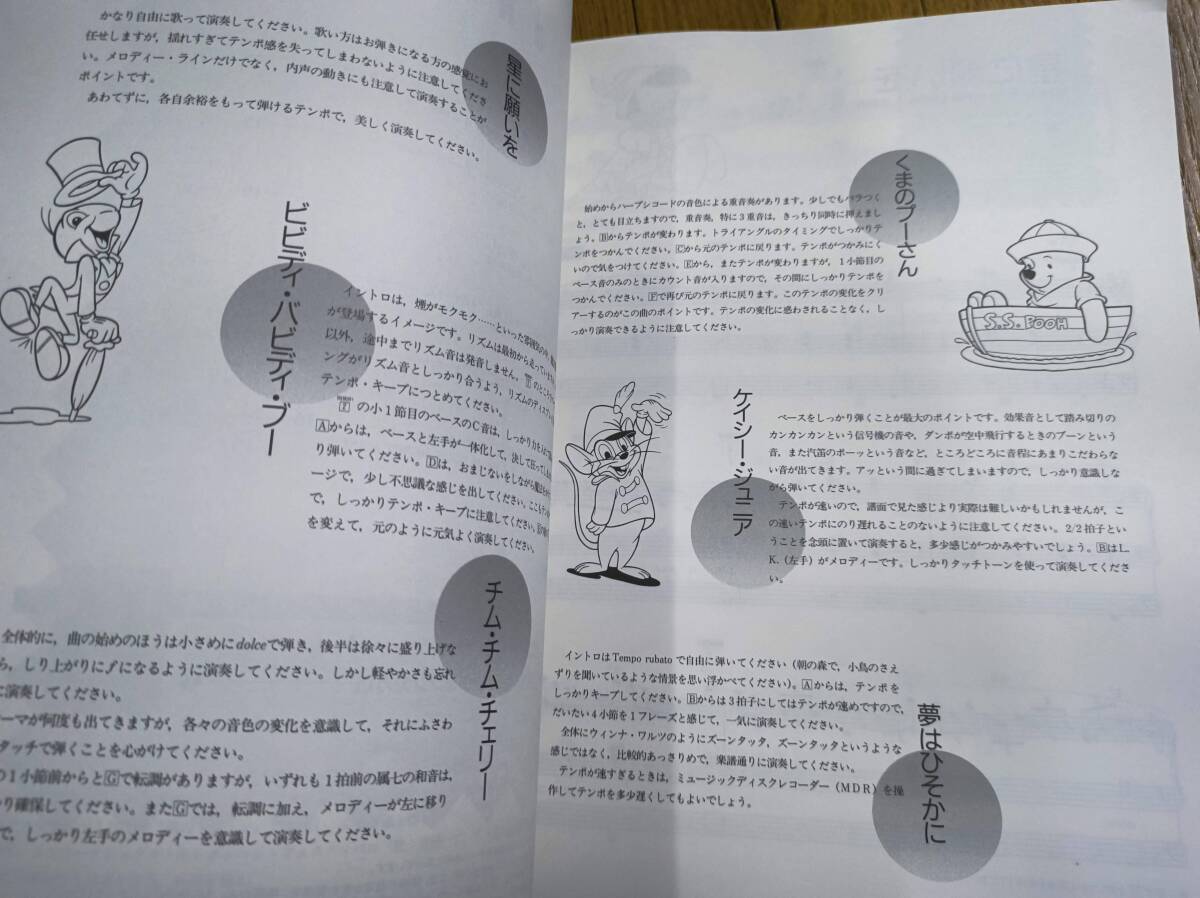 星に願いを
かなり自由に歌って演奏してください。歌い方はお弾きになる方の感覚にお
任せしますが，揺れすぎてテンポ感を失ってしまわないように注意してくださ
い。メロディー・ラインだけでなく，内声の動きにも注意して演奏することが
ポイントです。
あわてずに，各自余裕をもって弾けるテンポで，美しく演奏してください。
ビビディ・バビディ・ブー
イントロは，煙がモクモク……といった雰囲気の中，
が登場するイメージです。リズムは最初から走っていますが
以外，途中までリズム音は発音しません。
ングがリズム音としっかり合うよう，リズムのディスプレイ
テンポ・キープにつとめてください。
の小1節目のベースのC音は，しっかり力を入れて
Aからは，ベースと左手が一体化して，決して
り弾いてください。Dは，おまじないをしながら魔法を
ージで，少し不思議な感じを出してください。ここもテン
で，しっかりテンポ・キープに注意してください。
を変えて，元のように元気よく演奏してください。
チム・チム・チェリー
全体的に，曲の始めのほうは小さめにdolceで弾き，後半は徐々に盛り上げな
ら，しり上がりにfになるように演奏してください。しかし軽やかさも忘れ
に演奏してください。
ーマが何度も出てきますが，各々の音色の変化を意識して，それにふさわ
タッチで弾くことを心がけてください。
の1小節前からとGで転調がありますが，いずれも1拍前の属七の和音は，
り確保してください。またGでは，転調に加え，メロディーが左に移り
で，しっかり左手のメロディーを意識して演奏してください。
くまのプーさん
始めからハープシコードの音色による重音奏があります。少しでもバラつく
と，とても目立ちますので，重音奏，特に3重音は，きっちり同時に押えまし
ょう。Bからテンポが変わります。トライアングルのタイミングでしっかりテ
ンポをつかんでください。Cから元のテンポに戻ります。テンポがつかみにく
いので気をつけてください。Eから，またテンポが変わりますが，1小節目の
ベース音のみのときにカウント音が入りますので，その間にしっかりテンポを
つかんでください。Fで再び元のテンポに戻ります。このテンポの変化をクリ
アーするのがこの曲のポイントです。テンポの変化に惑わされることなく，し
っかり演奏できるように注意してください。
S.S. POOH
ケイシー・ジュニア
ベースをしっかり弾くことが最大のポイントです。効果音として踏み切りの
カンカンカンという信号機の音や，ダンボが空中飛行するときのブーンという
音，また汽笛のポーッという音など，ところどころに音程にあまりこだわらな
い音が出てきます。アッという間に過ぎてしまいますので，しっかり意識しな
がら弾いてください。
テンポが速いので，譜面で見た感じより実際は難しいかもしれませんが，こ
の速いテンポにのり遅れることのないように注意してください。2/2拍子とい
うことを念頭に置いて演奏すると，多少感じがつかみやすいでしょう。BはL.
K.（左手）がメロディーです。しっかりタッチトーンを使って演奏してくださ
い。
夢はひそかに
イントロはTempo rubatoで自由に弾いてください（朝の森で，小鳥のさえ
ずりを聞いているような情景を思い浮かべてください）。Aからは，テンポを
しっかりキープしてください。Bからは3拍子にしてはテンポが速めですので，
だいたい4小節を1フレーズと感じて，一気に演奏してください。
全体にウィンナ・ワルツのようにズーンタッタ，ズーンタッタというような
感じではなく，比較的あっさりめで，楽譜通りに演奏してください。
テンポが速すぎるときは，ミュージックディスクレコーダー（MDR）を操
作してテンポを多少遅くしてもよいでしょう。